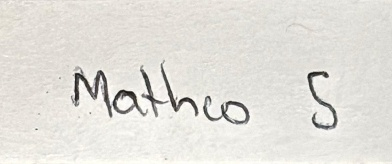 Matheo S